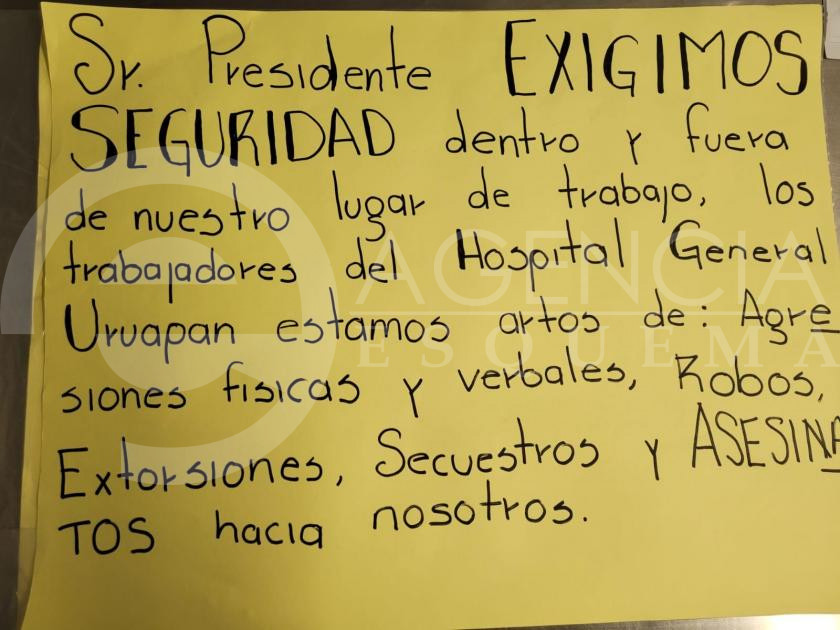 Sr. Presidente EXIGIMOS
SEGURIDAD dentro y fuera
de nuestro lugar de trabajo, los
trabajadores del Hospital General
Uruapan estamos artos de: Agre
siones fisicas y verbales, Robos,
Extorsiones, Secuestros y ASESINA
TOS hacia nosotros.
AGENCIA
ESQUEMA